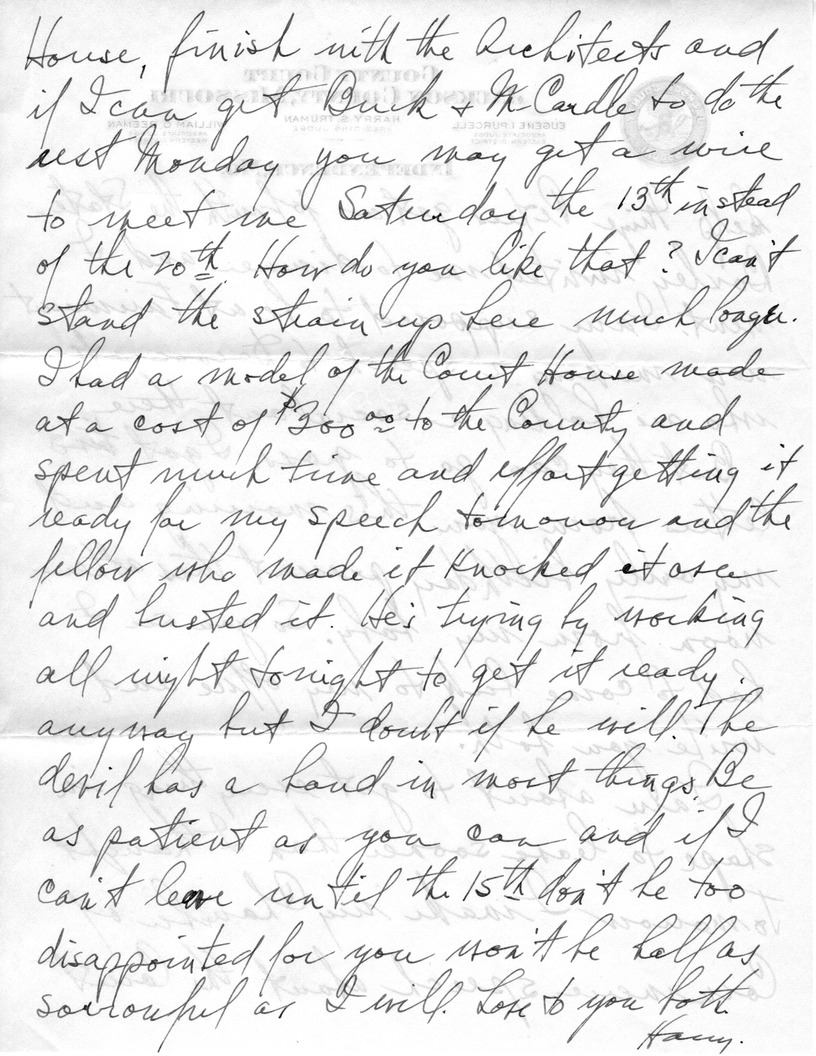 House, finish with the Architects and
if I can get Buck & McCardle to do the
rest Monday you may get a wire
to meet me Saturday the 13th instead
of the 20th. How do you like that? I can't
stand the strain up here much longer.
I had a model of the Court House made
at a cost of $300 00 to the County and
spent much time and effort getting it
ready for my speech tomorrow and the
fellow who made it knocked it over
and busted it. He's trying by working
all night tonight to get it ready.
anyway but I doubt if he will. The
devil has a hand in most things. Be
as patient as you can and if I
can't leave until the 15th don't be too
disappointed for you won't be half as
sorrowful as I will. Love to you both
Harry.